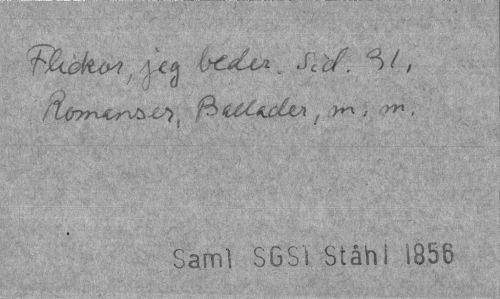 Flickor, jeg beder. Sid. 31.
Romanser, Ballader, m. m.
Saml SGSl Ståhl 1856